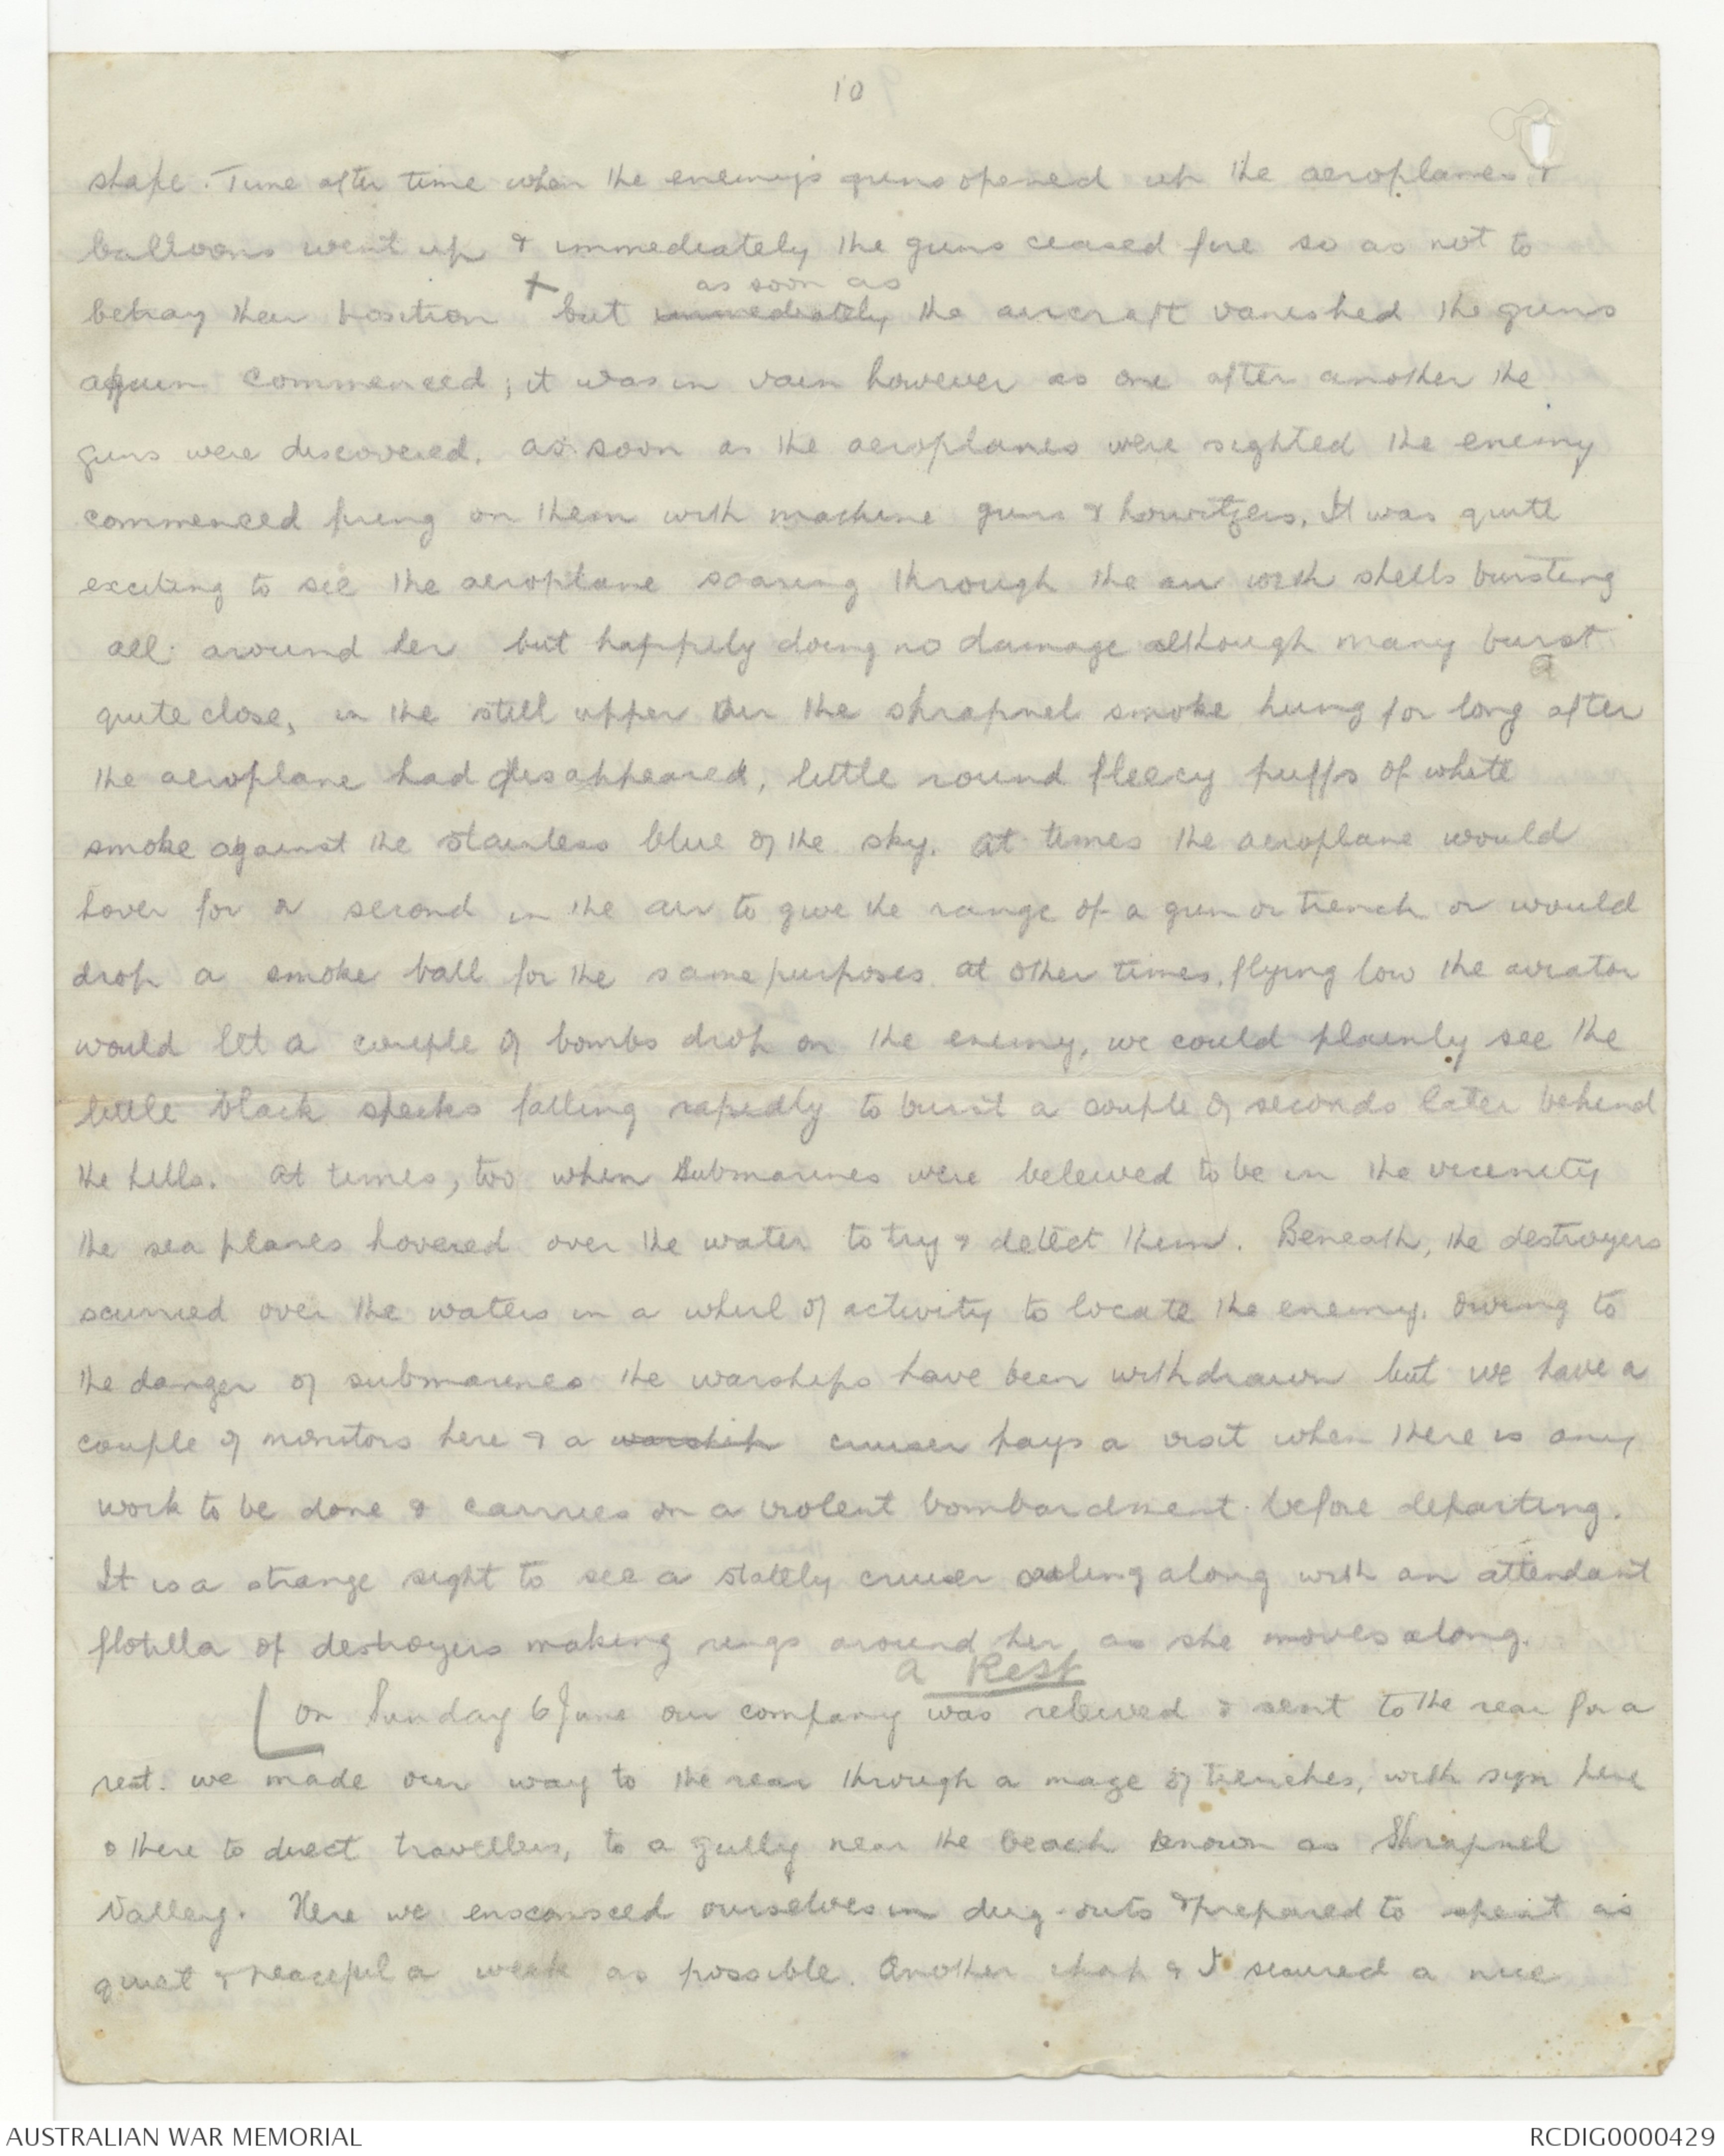 10
shape. Time after time when the enemy's guns opened up the aeroplanes &
balloons went up & immediately the guns ceased fire so as not to
as soon as
betray their position + but immediately the aircraft vanished the guns
again commenced; it was in vain however as one after another the
guns were discovered. As soon as the aeroplanes were sighted the enemy
commenced firing on them with machine guns & howitzers. It was quite
exciting to see the aeroplane soaring through the air with shells bursting
all around her but happily doing no damage although many burst
quite close, in the still upper air the shrapnel smoke hung for long after
the aeroplane had disappeared, little round fleecy puffs of white
smoke against the stainless blue of the sky. At times the aeroplane would
hover for a second in the air to give the range of a gun or trench or would
drop a smoke ball for the same purposes. At other times, flying low the aviator
would let a couple of bombs drop on the enemy, we could plainly see the
little black specks falling rapidly to burst a couple of seconds later behind
the hills. At times, too when submarines were beleived to be in the vicinity
the sea planes hovered over the water to try & detect them. Beneath, the destroyers
scurried over the waters in a whirl of activity to locate the enemy. Owing to
the danger of submarines the warships have been withdrawn but we have a
couple of monitors here & a warship cruiser pays a visit when there is any
work to be done & carries on a violent bombardment before departing.
It is a strange sight to see a stately cruiser sailing along with an attendant
flotilla of destroyers making rings around her as she moves along.
A Rest
[On Sunday 6 June our company was releived & sent to the rear for a
rest. We made our way to the rear through a maze of trenches, with sign here
& there to direct travellers, to a gully near the beach known as Shrapnel
Valley. Here we ensconsced ourselves in dug-outs & prepared to spent as
quiet & peaceful a week as possible. Another chap & I secured a nice
AUSTRALIAN WAR MEMORIAL
RCDIG0000429